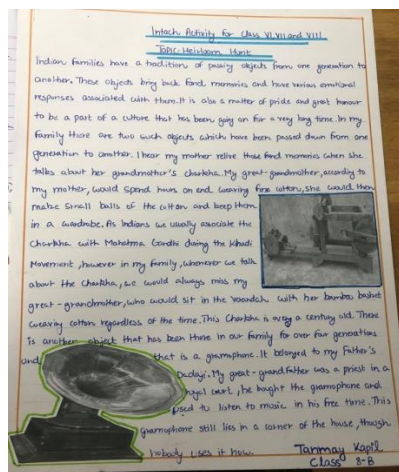 Intach Activity for Class VI, VII and VIII
Topic- Heirloom Hunt
Indian families have a tradition of passing objects from one generation to
another. These objects bring back fond memories and have various emotional
responses associated with them. It is also a matter of pride and great honour
to be a part of a culture that has been going on for a very long time. In my
family there are two such objects which have been passed down from one
generation to another. I hear my mother relive those fond memories when she
talks about her grandmother's charkha. My great-grandmother, according to
my mother, would spend hours on end, weaving fine cotton, she would then
make small balls of the cotton and keep them
in a wardrobe. As Indians we usually associate the
Charkha with Mahatma Gandhi during the Khadi
Movement, however in my family, whenever we talk
about the Charkha, we would always miss my
great-grandmother, who would sit in the Verandah with her bamboo basket
weaving cotton regardless of the time. This Charkha is a century old. There
is another object that has been there in our family for over four generations
and that is a gramophone. It belonged to my Father's
Dadaji. My great-grandfather was a priest in a
royal court, he bought the gramophone and
used to listen to music in his free time. This
gramophone still lies in a corner of the house, though
nobody uses it now.
Tanmay Kapil
Class 8-B